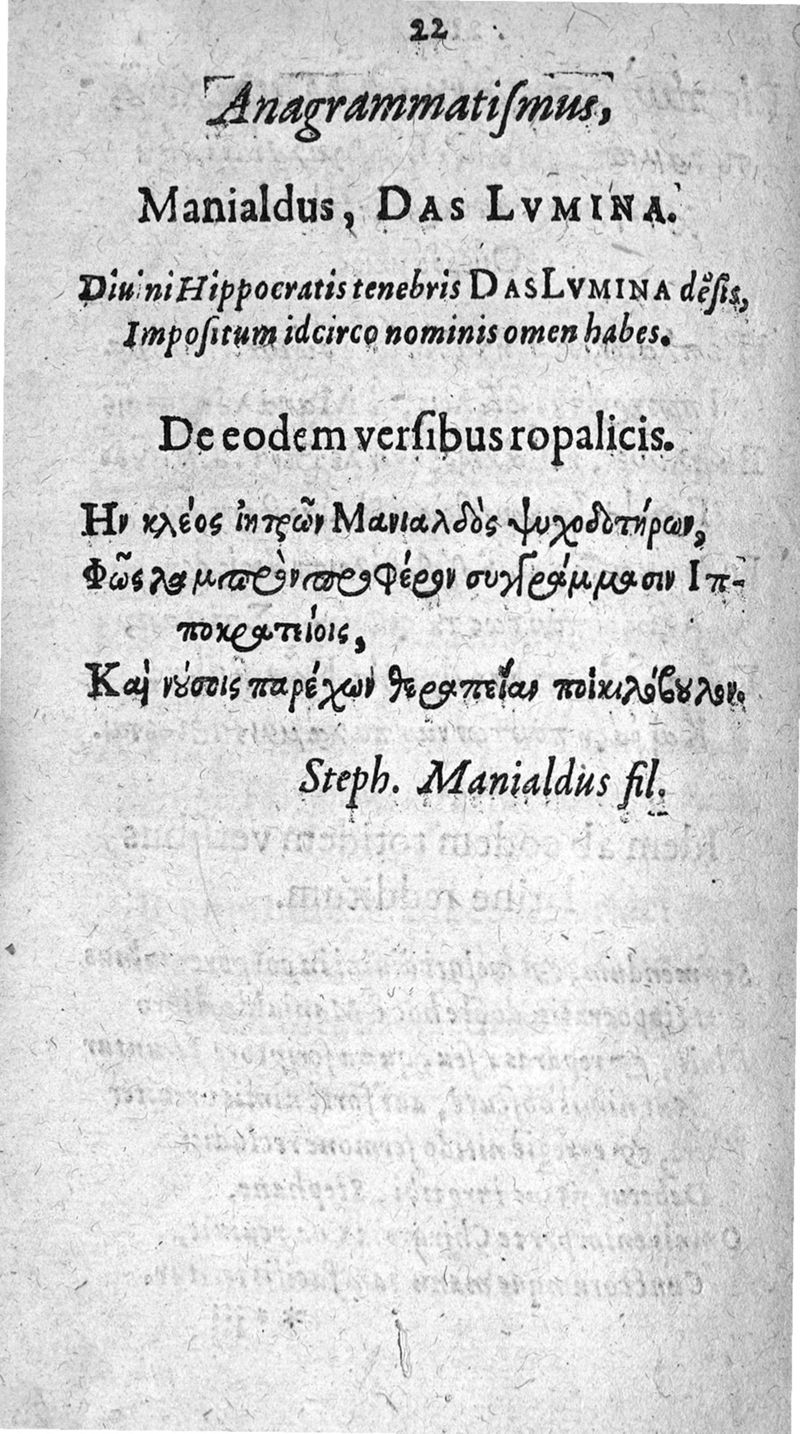 22
Anagrammatiſmus,
Manialdus, DAS LVMINA.
Diuini Hippocratis tenebris DAS LVMINA dēſis,
Impoſitum idcirco nominis omen habes.
De eodem verſibus ropalicis.
Ην κλέος ἰητρῶν Μανιαλδὸς ψυχοδοτήρων,
Φῶς λαμπρὸν προφέρων συγγράμμασιν Ιπ-
ποκρατείοις,
Καὶ νόσοις παρέχων θεραπείαν ποικιλόβουλον.
Steph. Manialdus fil.